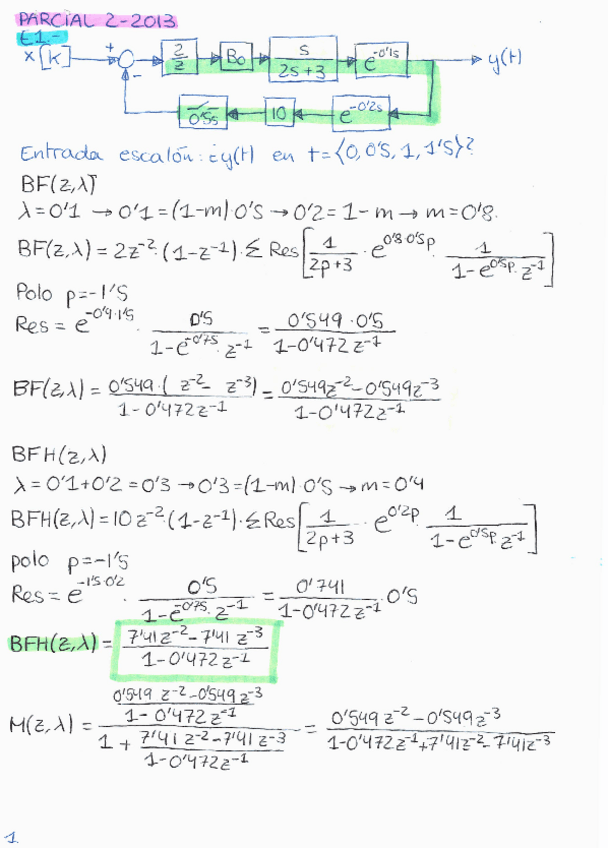 PARCIAL 2-2013
E1.-
x[k] + - 2/z B₀ s/(2s+3) e^(-0'1s) y(t)
0'5s 10 e^(-0'2s)
Entrada escalón: ¿y(t) en t=⟨0, 0'5, 1, 1'5⟩?
BF(z,λ)
λ=0'1 → 0'1=(1-m) 0'5 → 0'2=1-m → m=0'8.
BF(z,λ) = 2z⁻²·(1-z⁻¹)·Σ Res[1/(2p+3) · e^(0'8·0'5p) · 1/(1-e^(0'5p)·z⁻¹)]
Polo p=-1'5
Res = e^(-0'4·1'5) · 0'5/(1-e^(-0'75)·z⁻¹) = 0'549·0'5/(1-0'472z⁻¹)
BF(z,λ) = 0'549·(z⁻²-z⁻³)/(1-0'472z⁻¹) = (0'549z⁻²-0'549z⁻³)/(1-0'472z⁻¹)
BFH(z,λ)
λ=0'1+0'2=0'3 → 0'3=(1-m) 0'5 → m=0'4
BFH(z,λ)=10z⁻²·(1-z⁻¹)·ΣRes[1/(2p+3) · e^(0'2p) · 1/(1-e^(0'5p)·z⁻¹)]
polo p=-1'5
Res = e^(-1'5·0'2) · 0'5/(1-e^(-0'75)·z⁻¹) = 0'741/(1-0'472z⁻¹) · 0'5
BFH(z,λ) = (7'41z⁻²-7'41z⁻³)/(1-0'472z⁻¹)
M(z,λ) = ((0'549z⁻²-0'549z⁻³)/(1-0'472z⁻¹))/(1+(7'41z⁻²-7'41z⁻³)/(1-0'472z⁻¹)) = (0'549z⁻²-0'549z⁻³)/(1-0'472z⁻¹+7'41z⁻²-7'41z⁻³)
1